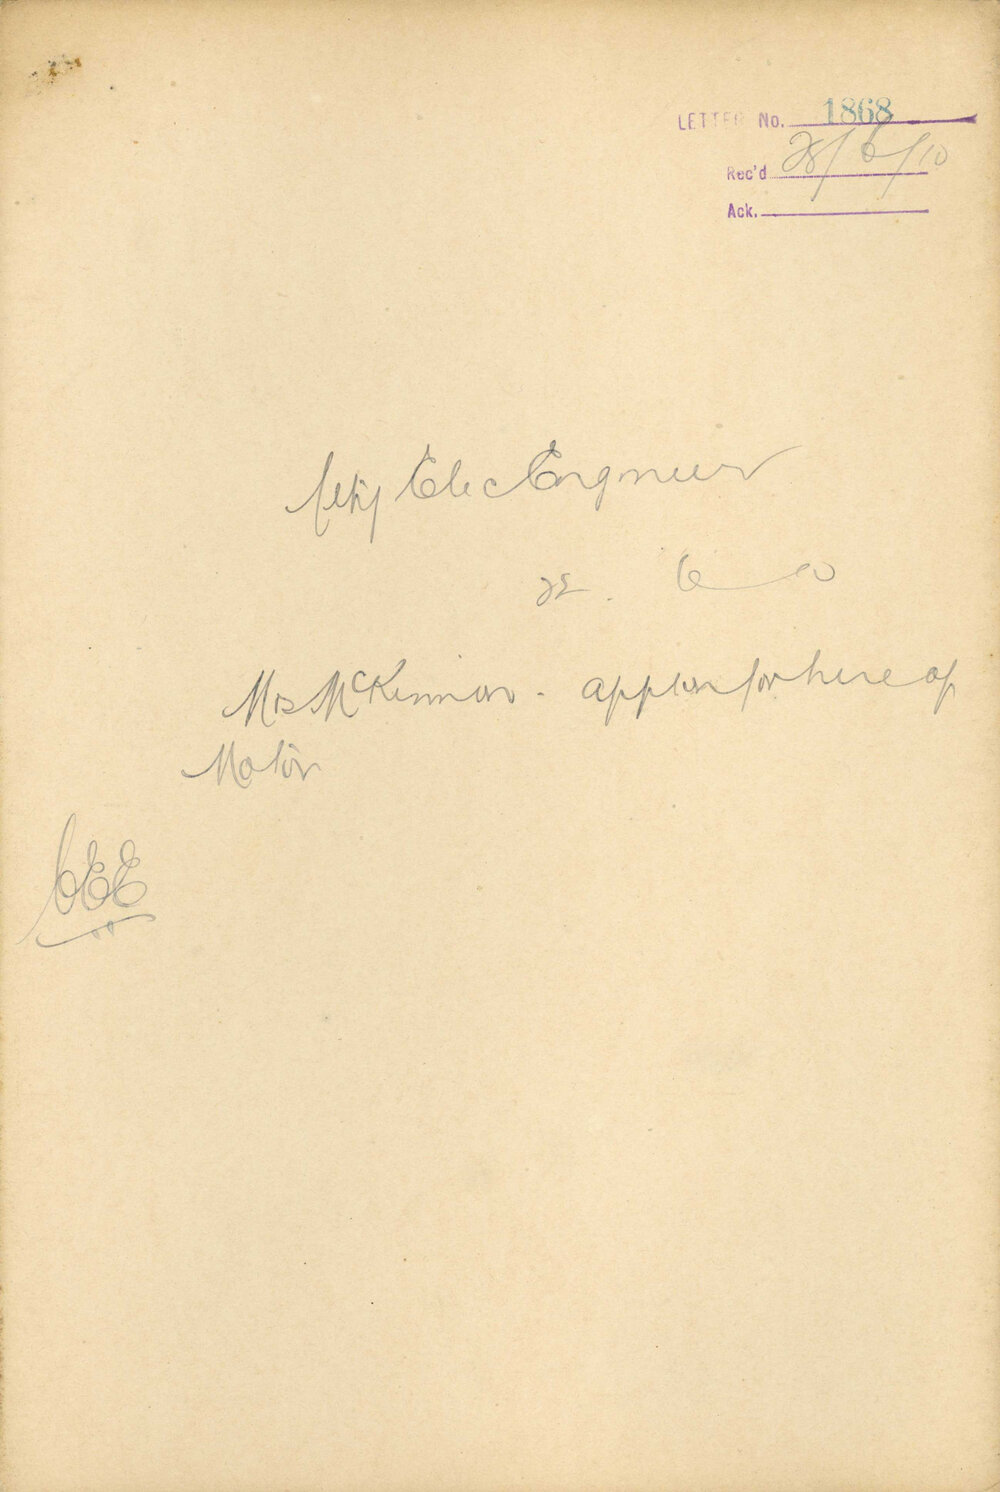 LETTER No. 1868
Rec'd 28/6/10
Ack.
City Elec Engineer
28. 6 10
Mrs McKinnon - appln for hire of
Motor
CEE